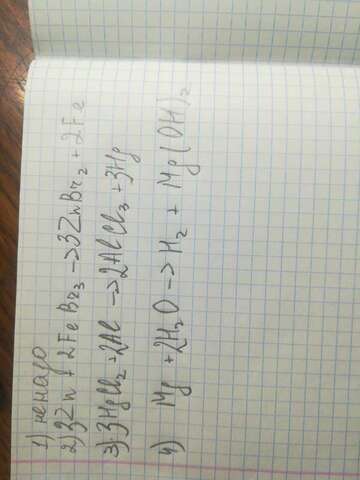 1) ненадо
2) 3Zn + 2FeBr3 → 3ZnBr2 + 2Fe
3) 3HgCl2 + 2Al → 2AlCl3 + 3Hg
4) Mg + 2H2O → H2 + Mg(OH)2